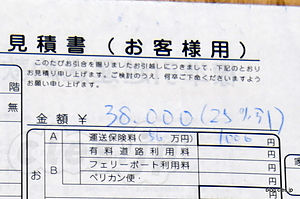 見積書（お客様用）
このたびお引合を賜りましたお引越しにつきまして、下記のとおり
お見積り申し上げます。ご検討のうえ、何卒ご下命くださいますよう
お願い申し上げます。
階
無
金額 ¥ 38.000 (25%引)
A 運送保険料( 万円) 1000 円
有料道路利用料 円
お B フェリーボート利用料 円
ペリカン便· 円